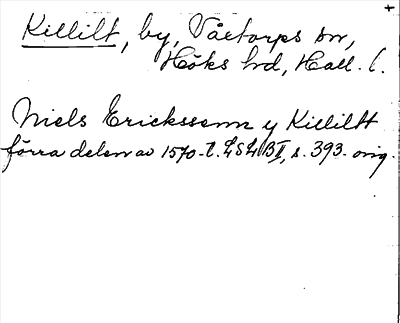 Killilt, by, Våxtorps sn,
Höks hd, Hall. l.
Niels Erickssenn y Killiltt
förra delen av 1570-t. LSLBII, s. 393. orig.